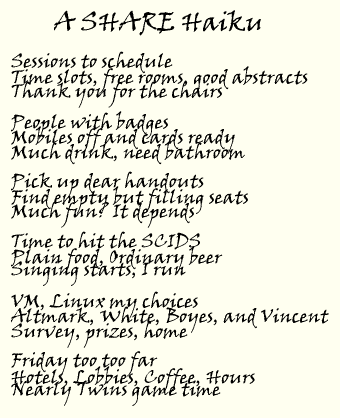 A SHARE Haiku
Sessions to schedule
Time slots, free rooms, good abstracts
Thank you for the chairs
People with badges
Mobiles off and cards ready
Much drink, need bathroom
Pick up dear handouts
Find empty but filling seats
Much fun? It depends
Time to hit the SCIDS
Plain food, Ordinary beer
Singing starts; I run
VM, Linux my choices
Altmark, White, Boyes, and Vincent
Survey, prizes, home
Friday too too far
Hotels, Lobbies, Coffee, Hours
Nearly Twins game time